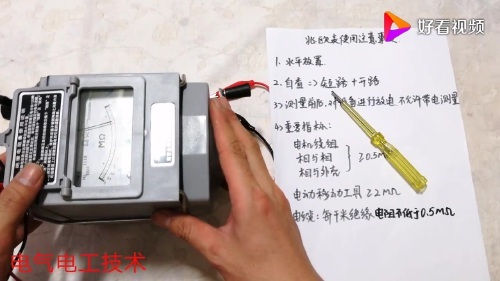 好看视频
兆欧表使用注意事
1. 水平放置
2. 自查 => 短路 + 开路
3> 测量前后,对设备进行放电 不允许带电测量
4> 重要指标:
电机绕组
相与相
相与外壳
≥0.5MΩ
电动移动工具 ≥2MΩ
电缆:每千米绝缘电阻不低于0.5MΩ
MΩ
电气电工技术